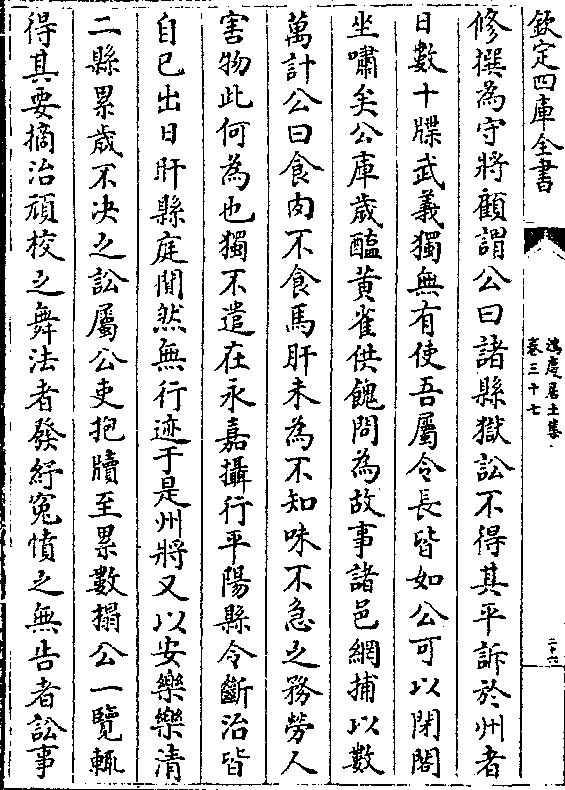 欽定四庫全書
鴻慶居士集
卷三十七
二十六
修撰為守將顧謂公曰諸縣獄訟不得其平訴於州者
日數十牒武義獨無有使吾屬令長皆如公可以閉閤
坐嘯矣公庫歳醢黄雀供餽問為故事諸邑網捕以數
萬計公曰食肉不食馬肝未為不知味不急之務勞人
害物此何為也獨不遣在永嘉攝行平陽縣令斷治皆
自已出日旰縣庭闃然無行迹于是州將又以安樂樂清
二縣累歳不決之訟屬公吏抱牘至累數搨公一覽輒
得其要摘治頑校之舞法者發紓寃憤之無告者訟事